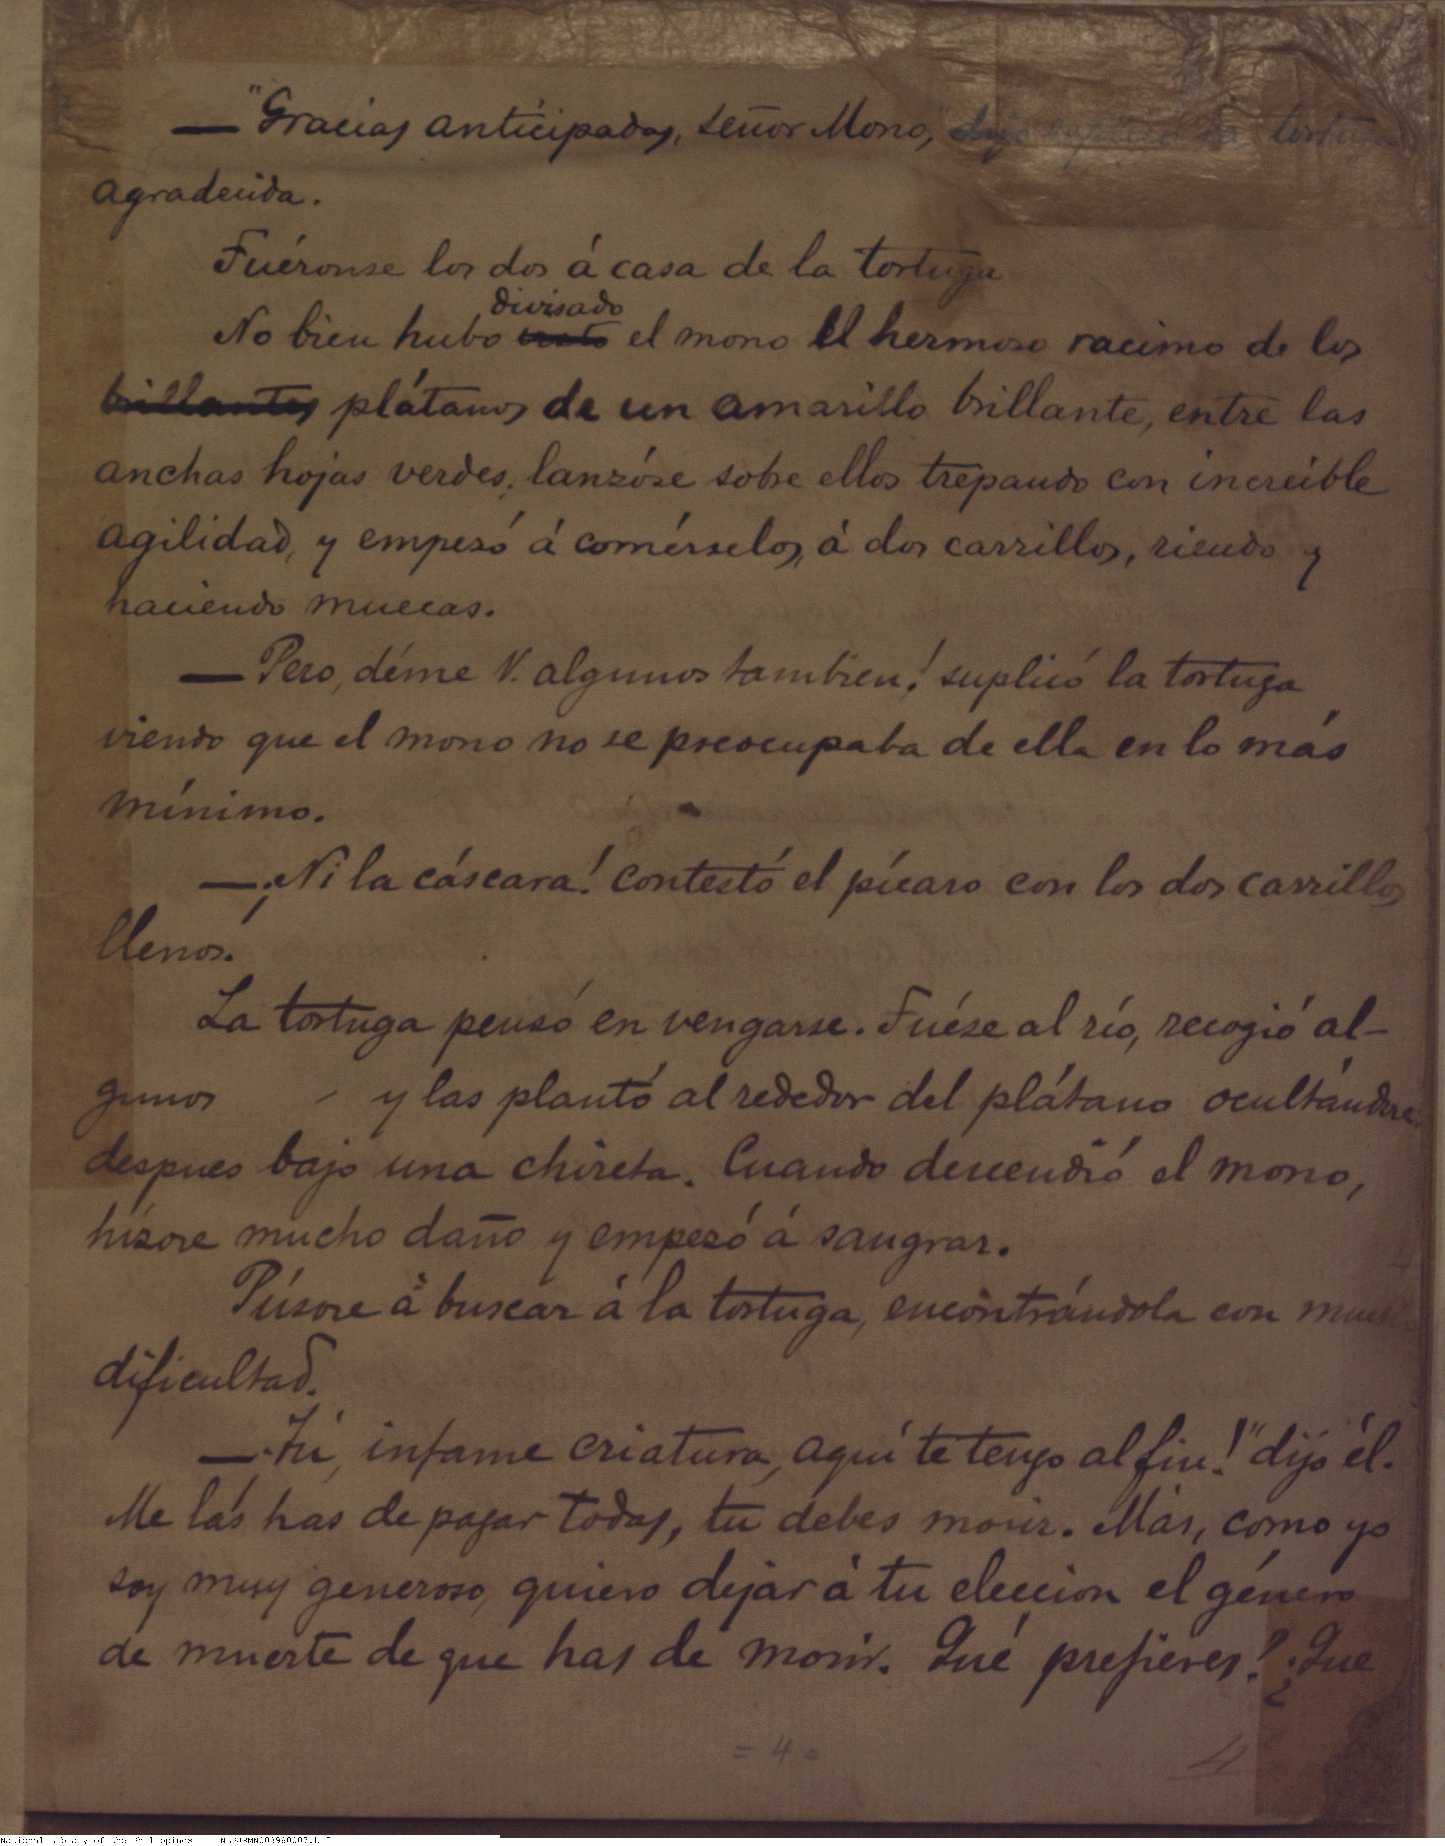 — "Gracias anticipadas, señor Mono, la tortuga
agradecida.
Fuéronse los dos á casa de la tortuga
divisado
No bien hubo visto el mono el hermoso racimo de los
brillantes plátanos de un amarillo brillante, entre las
anchas hojas verdes, lanzóse sobre ellos trepando con increible
agilidad, y empezó á comérselos, á dos carrillos, riendo y
haciendo muecas.
— Pero, déme V. algunos tambien! suplicó la tortuga
viendo que el mono no se preocupaba de ella en lo más
mínimo.
— ¡Ni la cáscara! contestó el pícaro con los dos carrillos
llenos.
La tortuga pensó en vengarse. Fuése al río, recogió al-
gunos y las plantó al rededor del plátano ocultándose
despues bajo una chireta. Cuando descendió el mono,
hízose mucho daño y empezó á sangrar.
Púsose á buscar á la tortuga, encontrándola con
dificultad.
— ¡Tú, infame criatura, aquí te tengo al fin!" dijo él.
Me lás has de pagar todas, tu debes morir. Más, como yo
soy muy generoso, quiero dejar á tu eleccion el género
de muerte de que has de morir. Qué prefieres? ¿Que
= 4 =
4
National Library of the Philippines